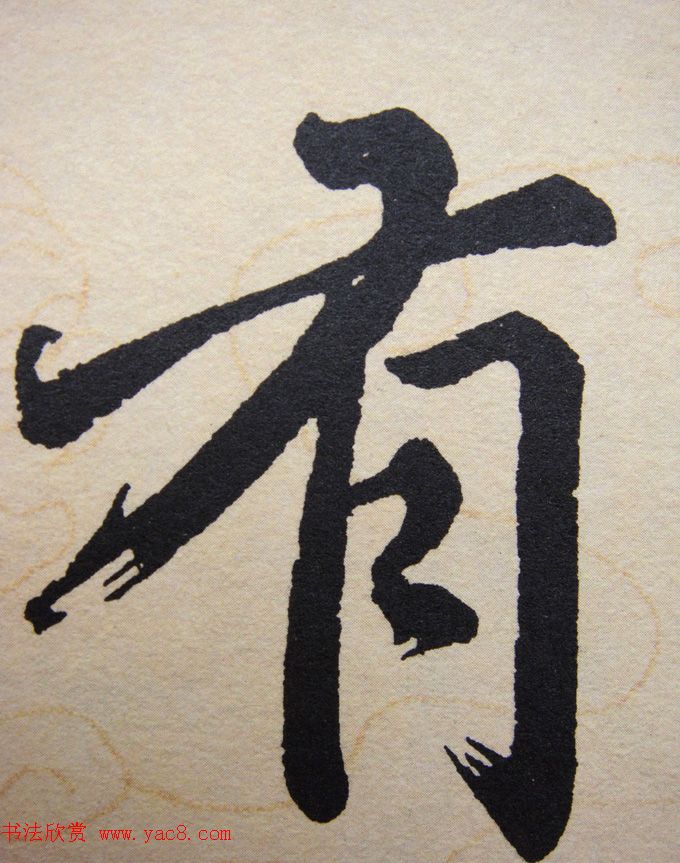 有
书法欣赏 www.yac8.com